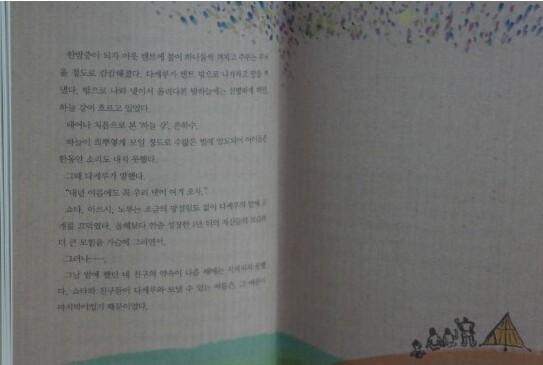 한밤중이 되자 이웃 텐트에 불이 하나둘씩 꺼지고 주위는
을 정도로 캄캄해졌다. 다케루가 텐트 밖으로 나가자고 말을
냈다. 밖으로 나와 넷이서 올려다본 밤하늘에는 선명하게 하얀
하늘 강이 흐르고 있었다.
태어나 처음으로 본 '하늘 강', 은하수.
하늘이 희뿌옇게 보일 정도로 수많은 별에 압도되어 아이들은
한동안 소리도 내지 못했다.
그때 다케루가 말했다.
"내년 여름에도 꼭 우리 넷이 여기 오자."
쇼타, 아쓰시, 노부는 조금의 망설임도 없이 다케루의 말에
개를 끄덕였다. 올해보다 한층 성장한 1년 뒤의 자신들의 모습과
더 큰 모험을 가슴에 그리면서.
그러나…….
그날 밤에 했던 네 친구의 약속이 다음 해에는 지켜지지 못했
다. 쇼타와 친구들이 다케루와 보낼 수 있는 여름은, 그 여름이
마지막이었기 때문이었다.